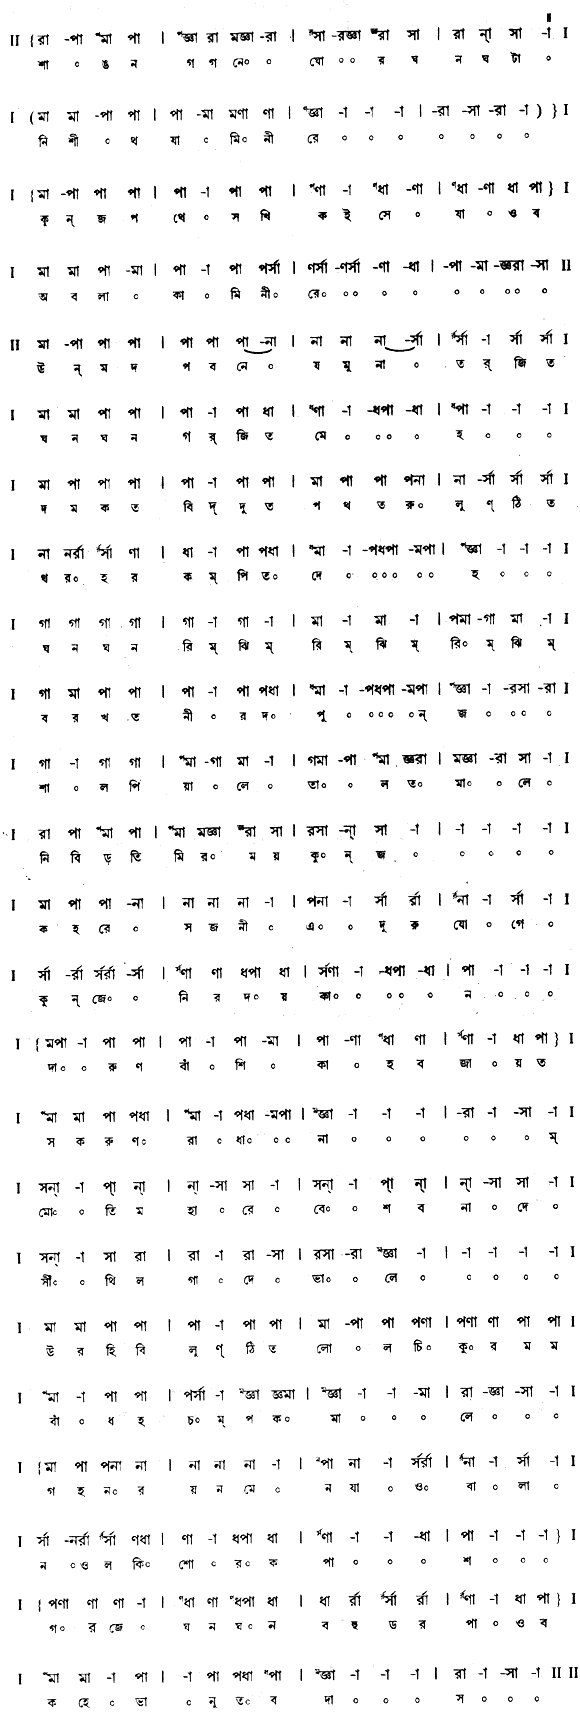 II {রা -পা ᵐমা পা | ᵐজ্ঞা রা মজ্ঞা -রা | ᶻসা -রজ্ঞা ᵐরা সা | রা ন্‌া সা -া I
শা ০ ঙন গ গ নে০ ০ ঘো ০ ০ র ঘ ন ঘ টা ০
I (মা মা -পা পা | পা -মা মণা ণা | ᵐজ্ঞা -া -া -া | -রা -সা -রা -া ) } I
নি শী ০ থ যা ০ মি০ নী রে ০ ০ ০ ০ ০ ০ ০
I {মা -পা পা পা | পা -া পা পা | ᵖণা -া ᵖধা -ণা | ᵖধা -ণা ধা পা} I
কু ন্ জ প থে ০ স খি ক ই সে ০ যা ০ ও ব
I মা মা পা -মা | পা -া পা পর্সা | ণর্সা -ণর্সা -ণা -ধা | -পা -মা -জ্ঞরা -সা II
অ ব লা ০ কা ০ মি নী০ রে০ ০০ ০ ০ ০ ০ ০০ ০
II মা -পা পা পা | পা পা পা -না | না না না -র্সা | র্সর্সা -া র্সা র্সা I
উ ন্ ম দ প ব নে ০ য মু না ০ ত র্ জি ত
I মা মা পা পা | পা -া পা ধা | ᵖণা -া -ধপা -ধা | ᵖপা -া -া -া I
ঘ ন ঘ ন গ র্ জি ত মে ০ ০০ ০ হ ০ ০ ০
I মা পা পা পা | পা -া পা পা | মা পা পা পনা | না -র্সা র্সা র্সা I
দ ম ক ত বি দ্ দু ত প থ ত রু০ লু ণ্ ঠি ত
I না নর্রা র্সর্সা ণা | ধা -া পা পধা | ᵖমা -া -পধপা -মপা | ᵐজ্ঞা -া -া -া I
থ র০ হ র ক ম্ পি ত০ দে ০ ০০০ ০০ হ ০ ০ ০
I গা গা গা গা | গা -া গা -া | মা -া মা -া | পমা -গা মা -া I
ঘ ন ঘ ন রি ম্ ঝি ম্ রি ম্ ঝি ম্ রি০ ম্ ঝি ম্
I গা মা পা পা | পা -া পা পধা | ᵖমা -া -পধপা -মপা | ᵐজ্ঞা -া -রসা -রা I
ব র খ ত নী ০ র দ০ পু ০ ০০০ ০ন্ জ ০ ০০ ০
I গা -া গা গা | ᵖমা -গা মা -া | গমা -পা ᵖমা জ্ঞরা | মজ্ঞা -রা সা -া I
শা ০ ল পি য়া ০ লে ০ তা০ ০ ল ত০ মা০ ০ লে ০
I রা পা ᵐমা পা | ᵐমা মজ্ঞা ᵐরা সা | রসা -ন্‌া সা -া | -া -া -া -া I
নি বি ড় তি মি র০ ম য় কু০ ন্ জ ০ ০ ০ ০ ০
I মা পা পা -না | না না না -া | পনা -া র্সা র্রা | র্সনা -া র্সা -া I
ক হ রে ০ স জ নী ০ এ০ ০ দু রু যো ০ গে ০
I র্সা -র্রা র্সর্রা -র্সা | র্সণা ণা ধপা ধা | র্সণা -া -ধপা -ধা | পা -া -া -া I
কু ন্ জে০ ০ নি র দ০ য় কা০ ০ ০০ ০ ন ০ ০ ০
I {মপা -া পা পা | পা -া পা -মা | পা -ণা ᵖধা ণা | র্সণা -া ধা পা} I
দা০ ০ রু ণ বাঁ ০ শি ০ কা ০ হ ব জা ০ য় ত
I ᵖমা মা পা পধা | ᵖমা -া পধা -মপা | ᵐজ্ঞা -া -া -া | -রা -া -সা -া I
স ক রু ণ০ রা ০ ধা০ ০০ না ০ ০ ০ ০ ০ ০ ম্
I সন্‌া -া প্‌া ন্‌া | ন্‌া -সা সা -া | সন্‌া -া প্‌া ন্‌া | ন্‌া -সা সা -া I
মো০ ০ তি ম হা ০ রে ০ বে০ ০ শ ব না ০ দে ০
I সন্‌া -া সা রা | রা -া রা -সা | রসা -রা ᵐজ্ঞা -া | -া -া -া -া I
সীঁ০ ০ থি ল গা ০ দে ০ ভা০ ০ লে ০ ০ ০ ০ ০
I মা মা পা পা | পা -া পা পা | মা -পা পা পণা | পণা ণা পা পা I
উ র হি বি লু ণ্ ঠি ত লো ০ ল চি০ কু০ র ম ম
I ᵖমা -া পা পা | পর্সা -া ᵐজ্ঞা জ্ঞমা | ᵐজ্ঞা -া -া -মা | রা -জ্ঞা -সা -া I
বাঁ ০ ধ হ চ০ ম্ প ক০ মা ০ ০ ০ লে ০ ০ ০
I {মা পা পনা না | না না না -া | ᵖপা না -া র্সর্রা | র্সনা -া র্সা -া I
গ হ ন০ র য় ন মে ০ ন যা ০ ও০ বা ০ লা ০
I র্সা -নর্রা র্সর্সা ণধা | ণা -া ধপা ধা | র্সণা -া -া -ধা | পা -া -া -া} I
ন ০ও ল কি০ শো ০ র০ ক পা ০ ০ ০ শ ০ ০ ০
I {পণা ণা ণা -া | ᵖধা ণা ᵖধপা ধা | ধা র্রা র্সর্সা র্রা | র্সণা -া ধা পা} I
গ০ র জে ০ ঘ ন ঘ০ ন ব হু ড র পা ০ ও ব
I ᵖমা মা -া পা | -া পা পধা ᵖপা | ᵐজ্ঞা -া -া -া | রা -া -সা -া II II
ক হে ০ ভা ০ নু ত০ ব দা ০ ০ ০ স ০ ০ ০